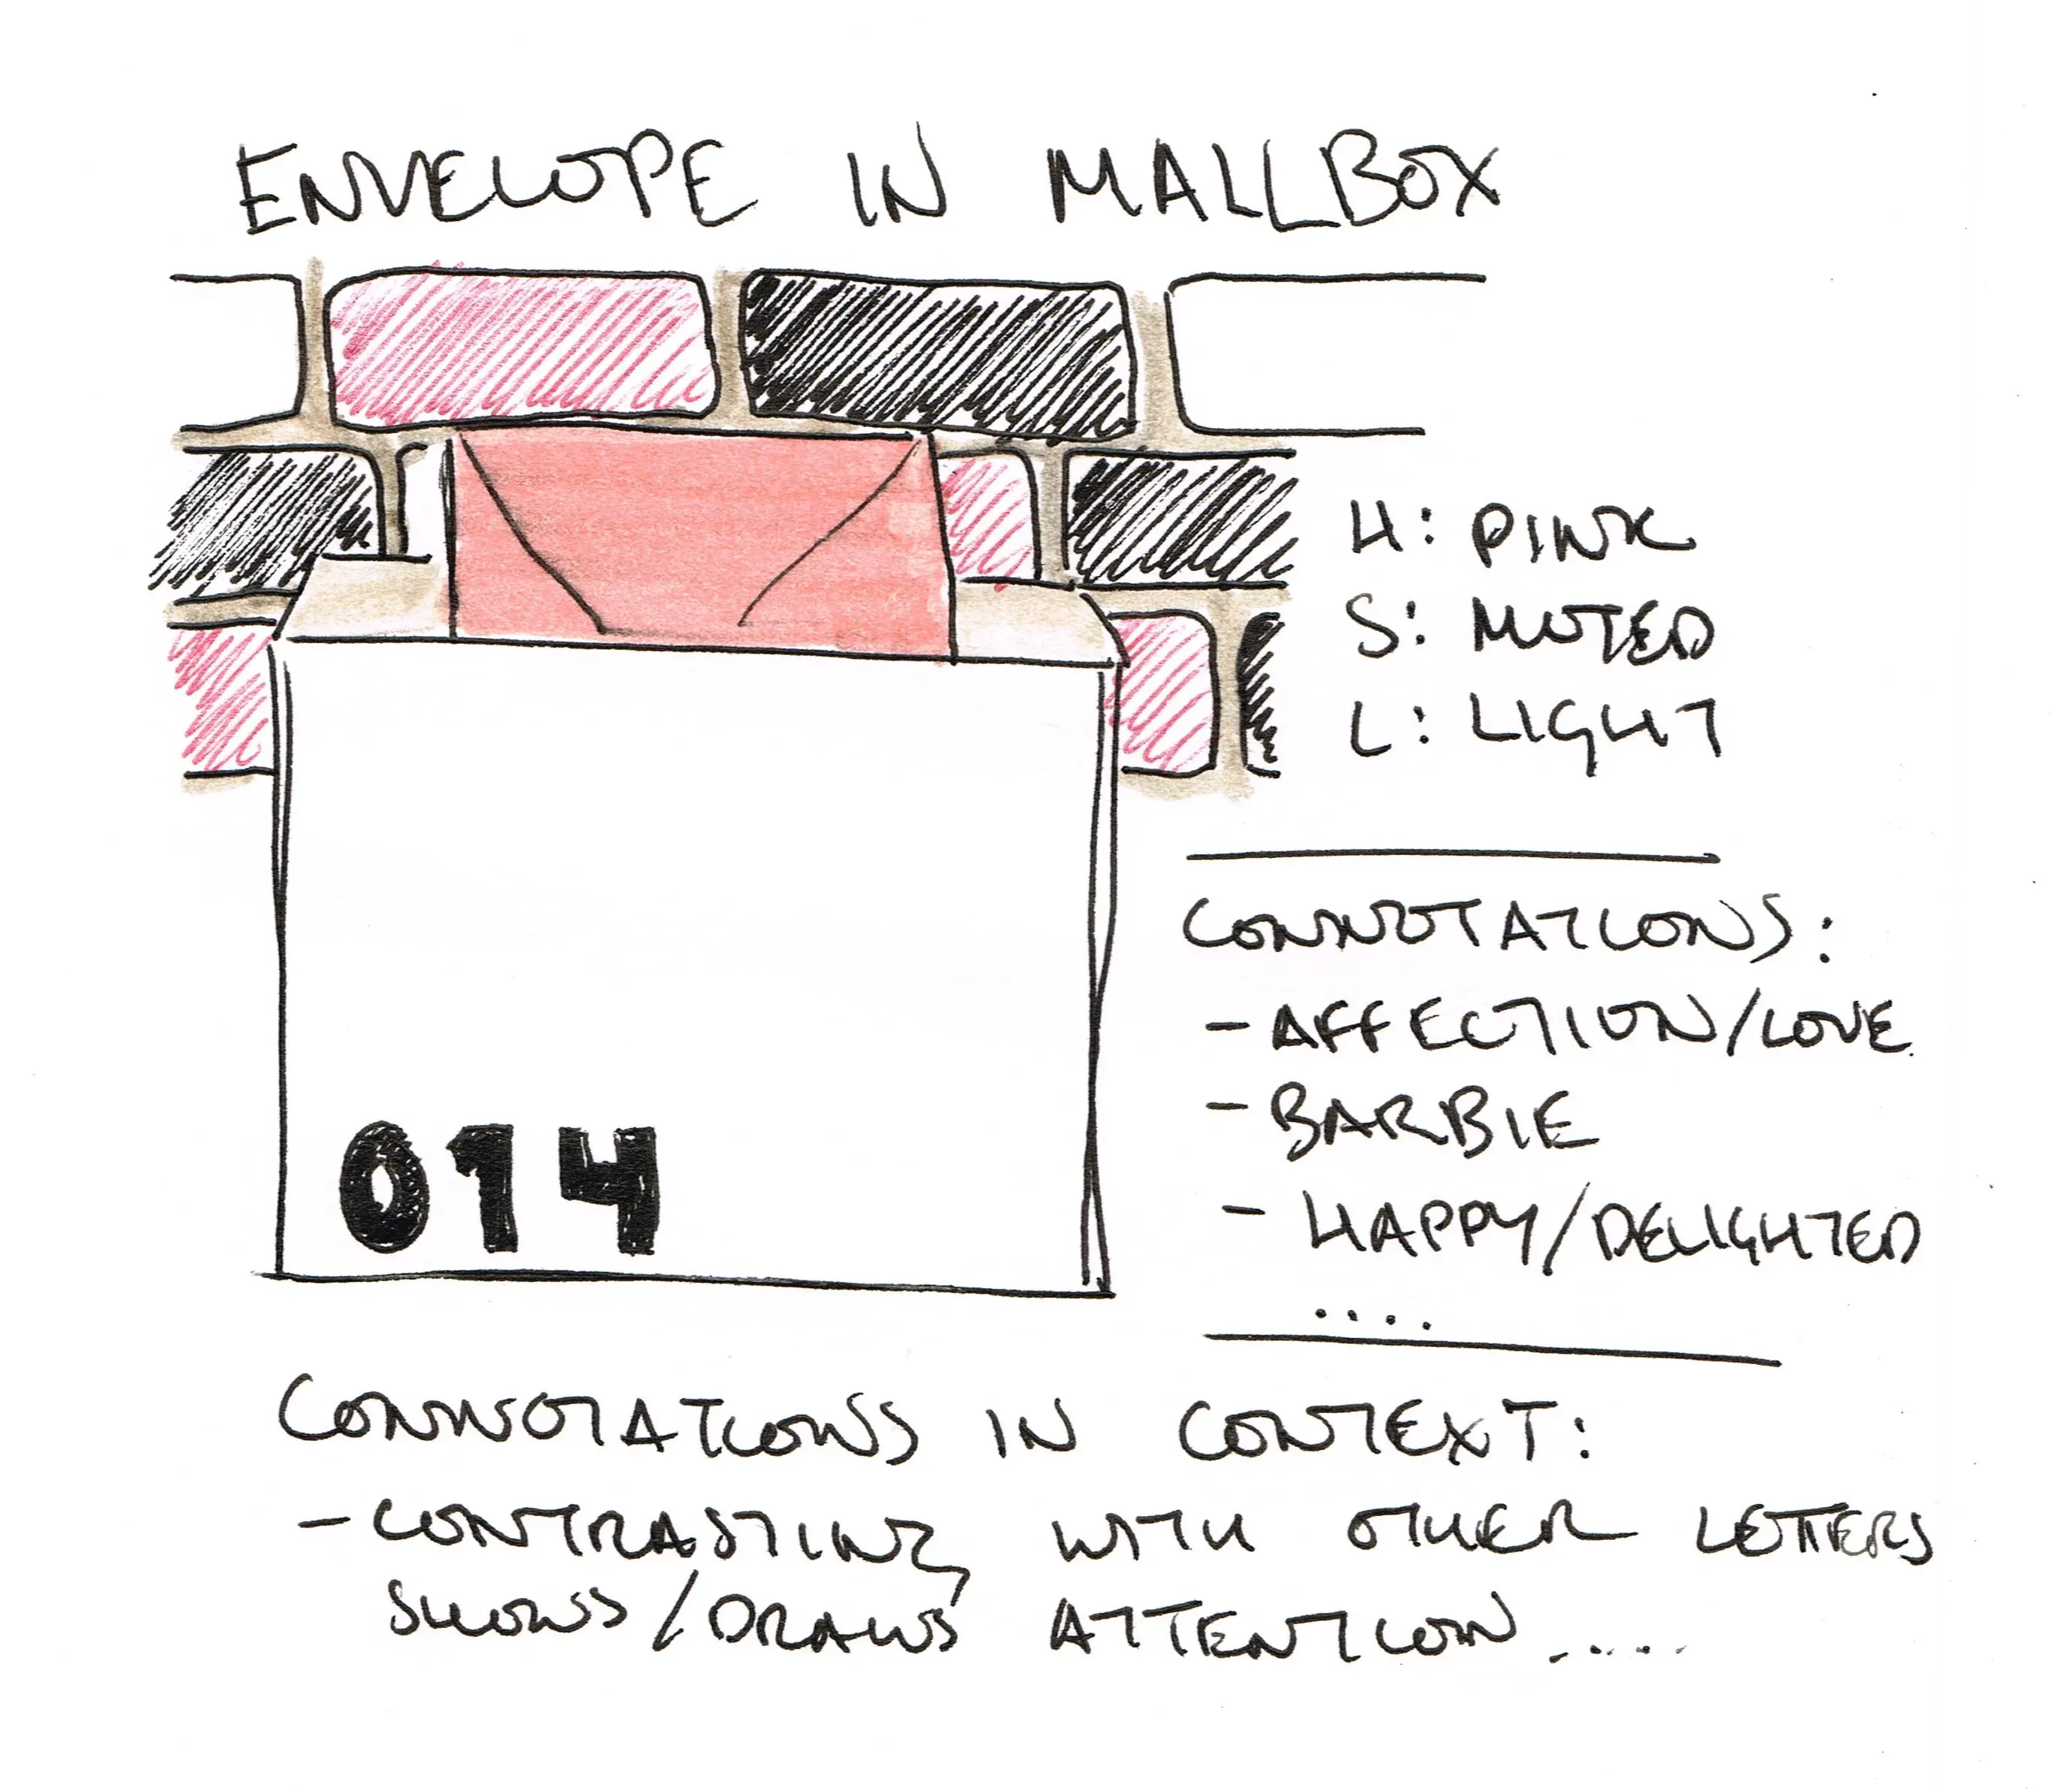 ENVELOPE IN MAILBOX
H: PINK
S: MUTED
L: LIGHT
CONNOTATIONS:
- AFFECTION/LOVE
- BARBIE
- HAPPY/DELIGHTED
....
014
CONNOTATIONS IN CONTEXT:
- CONTRASTING WITH OTHER LETTERS
SHOWS/DRAWS ATTENTION.....